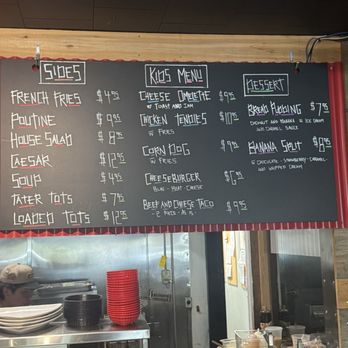 SIDES
FRENCH FRIES $4.95
POUTINE $9.95
HOUSE SALAD $8.95
CAESAR $12.95
SOUP $4.95
TATER TOTS $7.95
LOADED TOTS $12.95
KIDS MENU
CHEESE OMELETTE $9.95
W/ TOAST AND JAM
CHICKEN TENDIES $10.95
W/ FRIES
CORN DOG $9.95
W/ FRIES
CHEESEBURGER $6.95
BUN - MEAT - CHEESE
BEEF AND CHEESE TACO $9.95
DESSERT
BREAD PUDDING $7.95
AND BANANA W/ ICE CREAM
CARAMEL SAUCE
BANANA SPLIT $8.95
W/ CHOCOLATE - STRAWBERRY - CARAMEL
AND WHIPPED CREAM